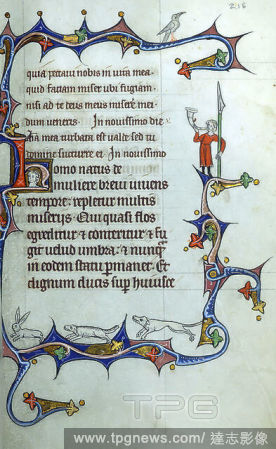 216
quia peccavi nobis in vita mea
quid faciam miser ubi fugiam
nisi ad te deus meus miserere mei
dum veneris In novissimo die
ma mea turbata est valde sed tu
domine succurre ei In novissimo
Homo natus de
muliere brevi vivens
tempore repletur multis
miseriis Qui quasi flos
egreditur et conteritur et fu
git velud umbra et nunq
in eodem statu permanet Et
dignum ducis sup huiusce
TPG
www.tpgnews.com/ 達志影像